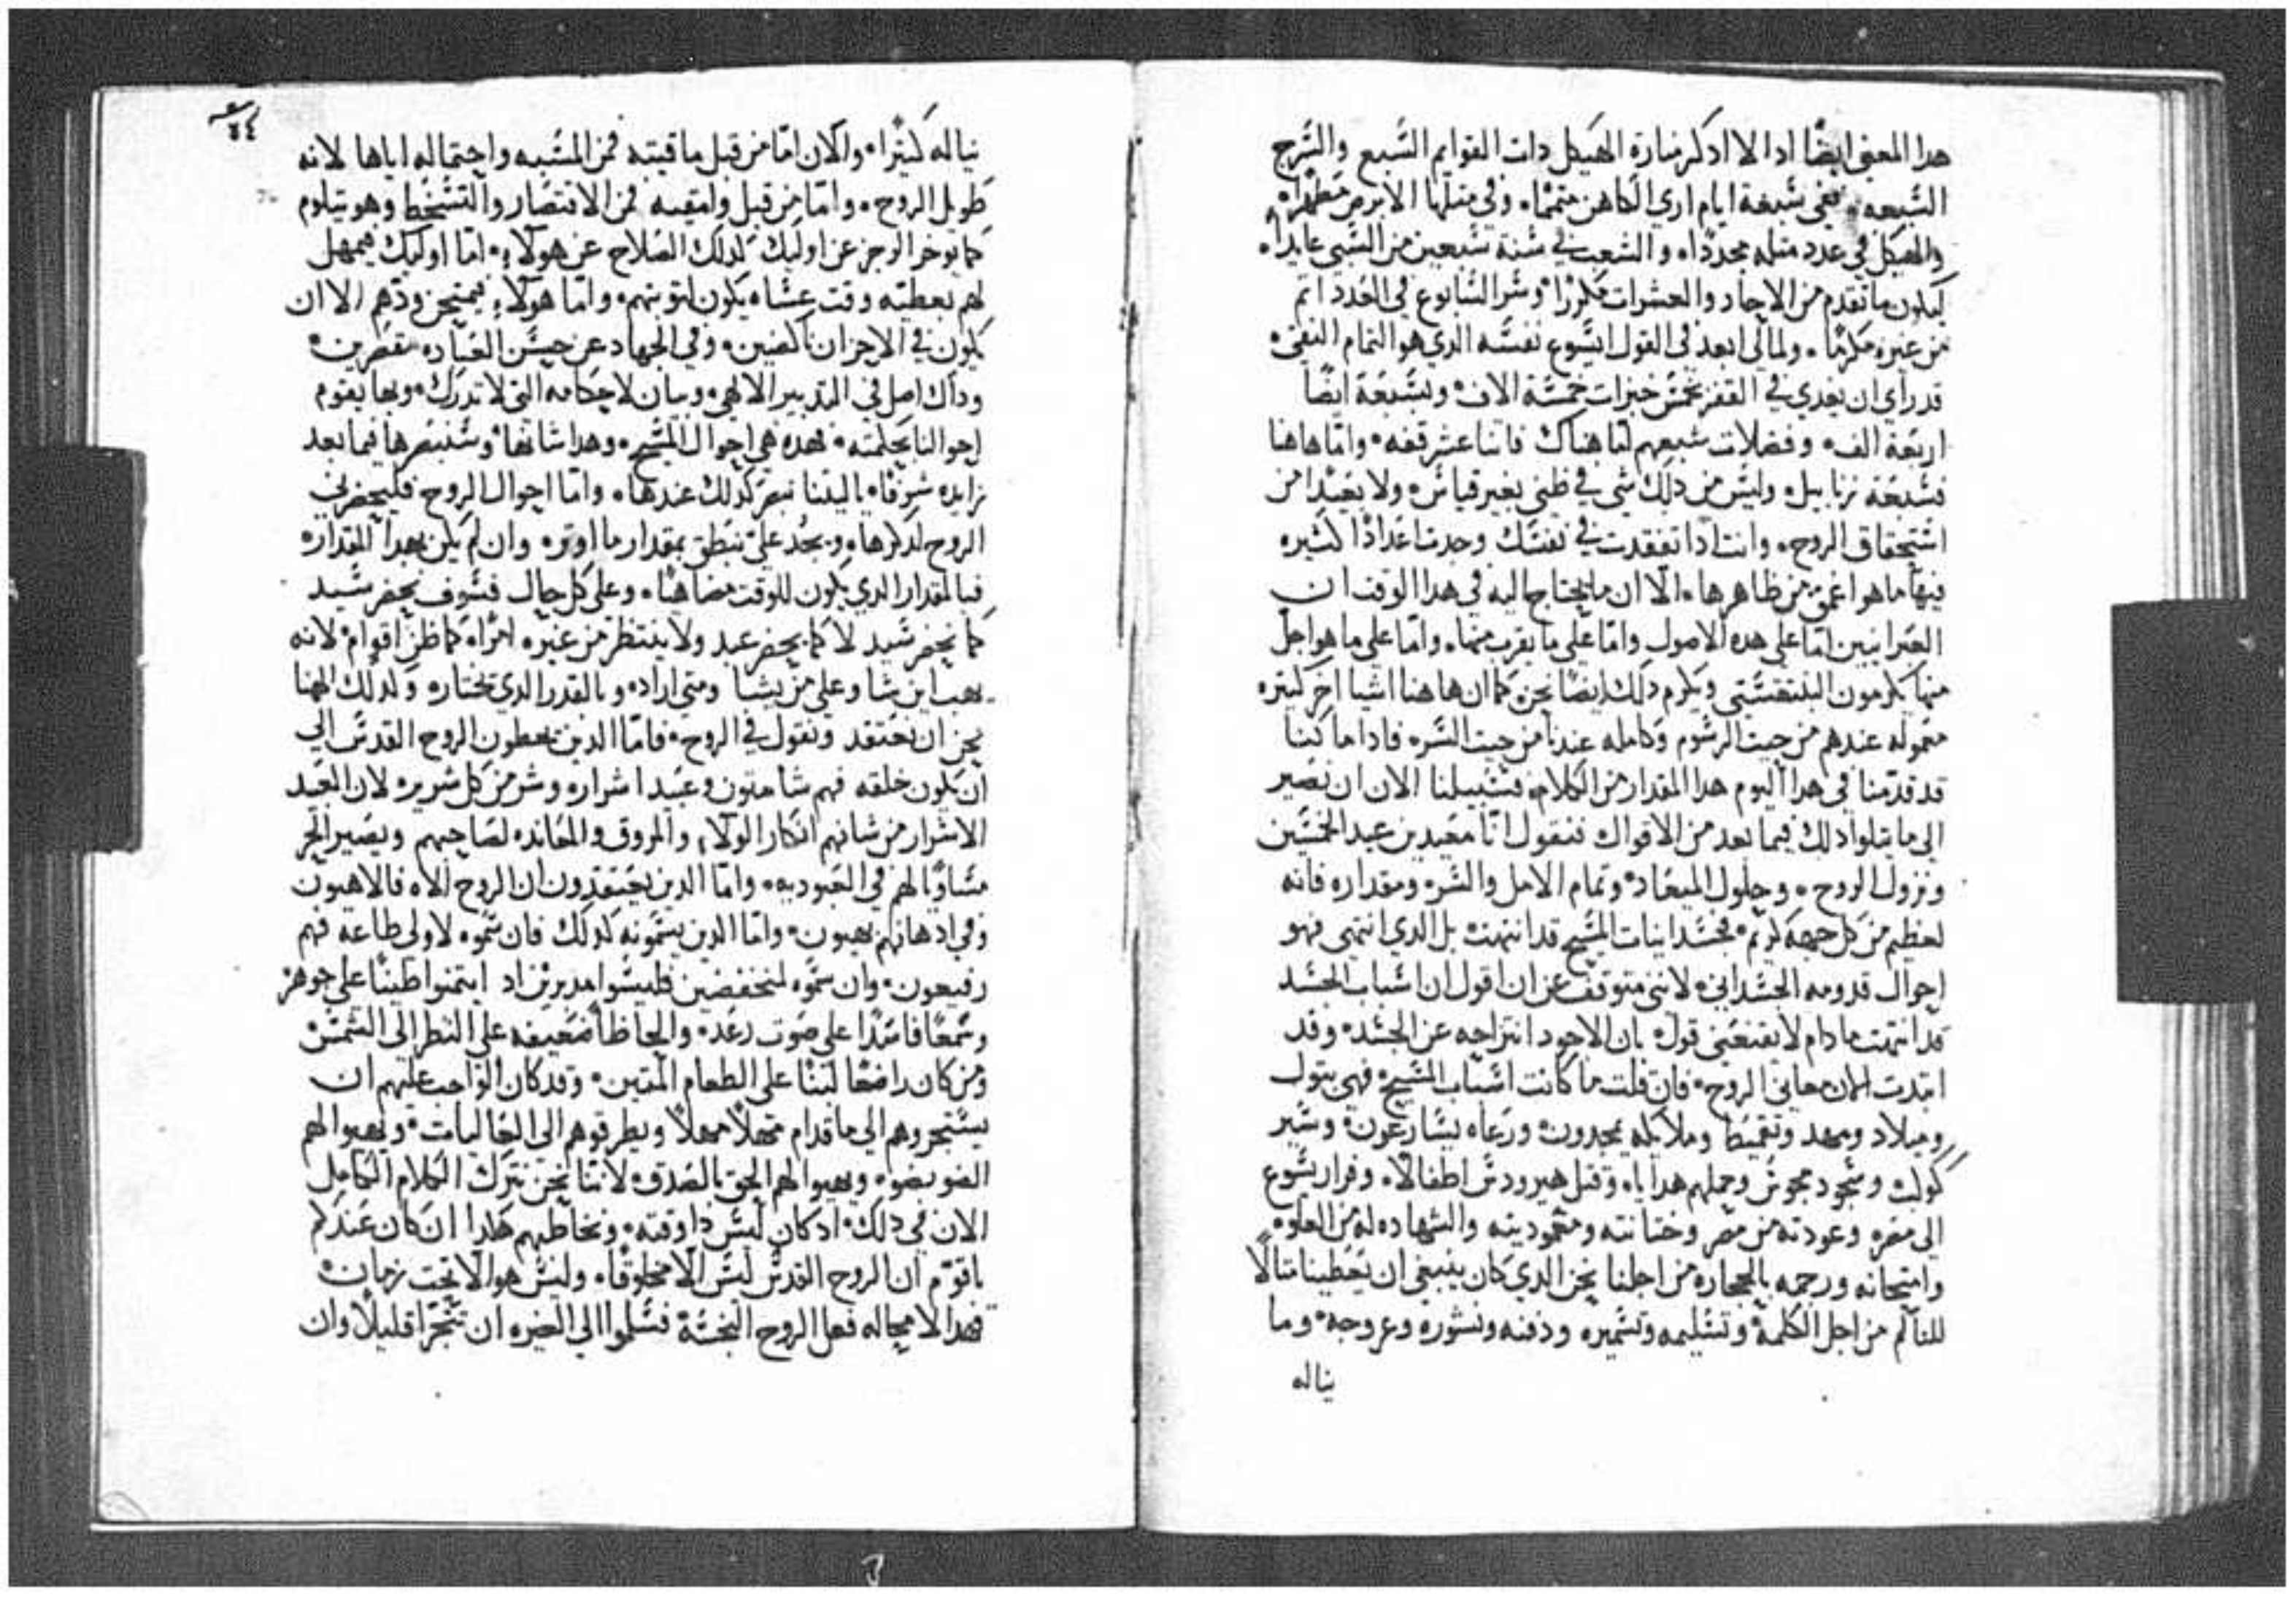 هدا المعنى ايضًا ادا لا ادكر منارة الهيكل دات القوايم السَبع والسَرج
السَبعه ففي سَبعة ايام اري الكاهن متممًا وفي مثلها الابرص مطهرًا
والهيكل في عدد مثله مجددًا والشعب في سَنة سَبعين من السَبي عايدًا
ليكون ما تقدم من الاحاد والعشرات مكررًا وسَر السَابوع في العدد اتم
من غيره مكرمًا ولمالي ابعد في القول ايسَوع نفسَه الدي هو التمام النقي
قد راي ان يغدي في القفر بخمسَ خبزات خمسَة الاف وبسَبعة ايضًا
اربعة الف وفضلات شبعهم اما هناك فاثنا عشر قفه واما هاهنا
فسَبعة زنابيل وليسَ من دلك شي في ظني بغير قياسَ ولا بعيدًا من
اسَتحقاق الروح وانت ادا تفقدت في نفسَك وجدت اعدادًا كثيره
فيها ما هو اعمق من ظاهرها الا ان ما يحتاج اليه في هدا الوقت ان
العبرانيين اما على هده الاصول واما على ما يقرب منها واما على ما هو اجل
منها يكرمون البنتقسَتي ويكرم دلك ايضًا نحن كما ان هاهنا اشيا اخر كتيره
معموله عندهم من حيت الرسَوم وكامله عندنا من حيت السَر فادا ما كنا
قد قدمنا في هدا اليوم هدا المقدار من الكلام فسَبيلنا الان ان نصير
الى ما يتلوا دلك فيما بعد من الاقوال فنقول انا معيدين عيد الخمسَين
ونزول الروح وحلول الميعاد وتمام الامل والسَر ومقداره فانه
لعظيم من كل جهه كريم فجسَدانيات المسَيح قد انتهت بل الدي انتهى فهو
احوال قدومه الجسَداني لانني متوقف عن ان اقول ان اسَباب الجسَد
قد انتهت ما دام لا يقنعني قول بان الاجود انتزاحه عن الجسَد وقد
ابتدت الان معاني الروح فان قلت ما كانت اسَباب المسَيح فهي بتول
وميلاد ومهد وتقميط وملايكه يمجدون ورعاه يسَارعون وسَير
كوكب وسَجود مجوسَ وحملهم هدايا وقتل هيرودسَ اطفالا وفرار يسَوع
الى مصر وعودته من مصر وختانته ومعموديته والشهاده له من العلو
وامتحانه ورجمه بالحجاره من اجلنا نحن الدي كان ينبغي ان يعطينا متالًا
للتالم من اجل الكلمة وتسَليمه وتسَميره ودفنه ونشوره وعروجه وما
يناله
٤٤
يناله كثيرًا والان اما من قبل ماقتيه فمن المسَبه واحتماله اياها لانه
طويل الروح واما من قبل وامقيه فمن الانتصار والتسَخط وهو يتلوم
كما يوخر الرجز عن اوليك كدلك الصلاح عن هولاء اما اوليك فيمهل
لهم بعطيته وقت عسَاه يكون لتوبتهم واما هولاء فيمتحن ودهم الا ان
يكون في الاحزان ناكصين وفي الجهاد عن حسَن العباده مقصرين
وداك اصل في التدبير الالهي وبيان لاحكامه التي لا تدرك وبها يقوم
احوالنا بحكمته فهده هي احوال المسَيح وهدا شانها وسَنبصرها فيما بعد
زايده شرفًا ياليتنا نبصر كدلك عندها واما احوال الروح فليحضرني
الروح لدكرها ويجد علي بنطق بمقدار ما اوتر وان لم يكن بهدا المقدار
فبالمقدار الدي يكون للوقت مضاهيًا وعلى كل حال فسَوف يحضر سَيد
كما يحضر سَيد لا كما يحضر عبد ولا ينتظر من غيره امرًا كما ظن اقوام لانه
يهب اين شا وعلى من يشا ومتى اراد وبالقدر الدي يختاره ولدلك الهمنا
نحن ان نعتقد ونقول في الروح فاما الدين يحطون الروح القدسَ الى
ان يكون خلقه فهم شامتون وعبيد اشرار وشر من كل شرير لان العبيد
الاشرار من شانهم انكار الولاء والمروق والمعانده لصاحبهم ويصير الحر
مسَاويًا لهم في العبوديه واما الدين يعتقدون ان الروح الاه فالاهيون
وفي ادهانهم بهيون واما الدين يسَمونه كدلك فان سَموه لاولى طاعه فهم
رفيعون وان سَموه لمنخفضين فليسَوا مدبرين اد ايتمنوا طينًا على جوهر
وسَمعًا فاسَدًا على صوت رعد والحاظا ضعيفه على النظر الى الشمسَ
ومن كان راضعًا لبنًا على الطعام المتين وقد كان الواجب عليهم ان
يسَتجروهم الى ما قدام مهلًا مهلًا ويطرقوهم الى العاليات ويهبوا لهم
الضو بضو ويهبوا لهم الحق بالصدق لاننا نحن نترك الكلام الكامل
الان في دلك اد كان ليسَ دا وقته ونخاطبهم هكدا ان كان عندكم
ياقوم ان الروح القدسَ ليسَ الا مخلوقًا وليسَ هو الا تحت زمان
فهدا لا محاله فعل الروح النجسَة فسَلموا الى الغيره ان تتجرا قليلًا وان